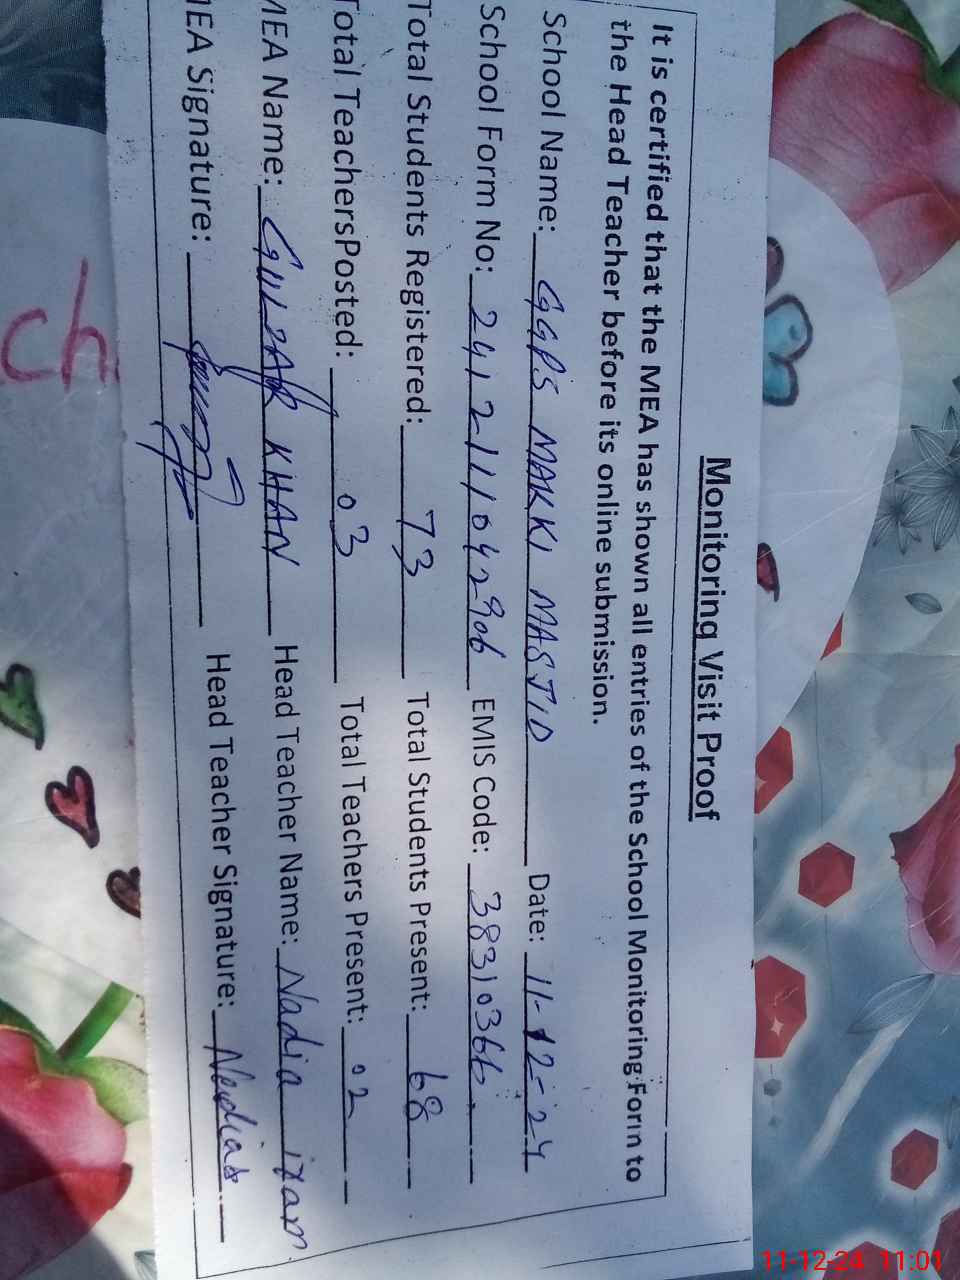 Monitoring Visit Proof
It is certified that the MEA has shown all entries of the School Monitoring Form to
the Head Teacher before its online submission.
School Name: GGPS MAKKI MASJID Date: 11-12-24
School Form No: 2412111042906 EMIS Code: 38310366
Total Students Registered: 73 Total Students Present: 68
Total TeachersPosted: 03 Total Teachers Present: 02
MEA Name: GULZAR KHAN Head Teacher Name: Nadia
MEA Signature: Head Teacher Signature:
ch
11-12-24 11:01